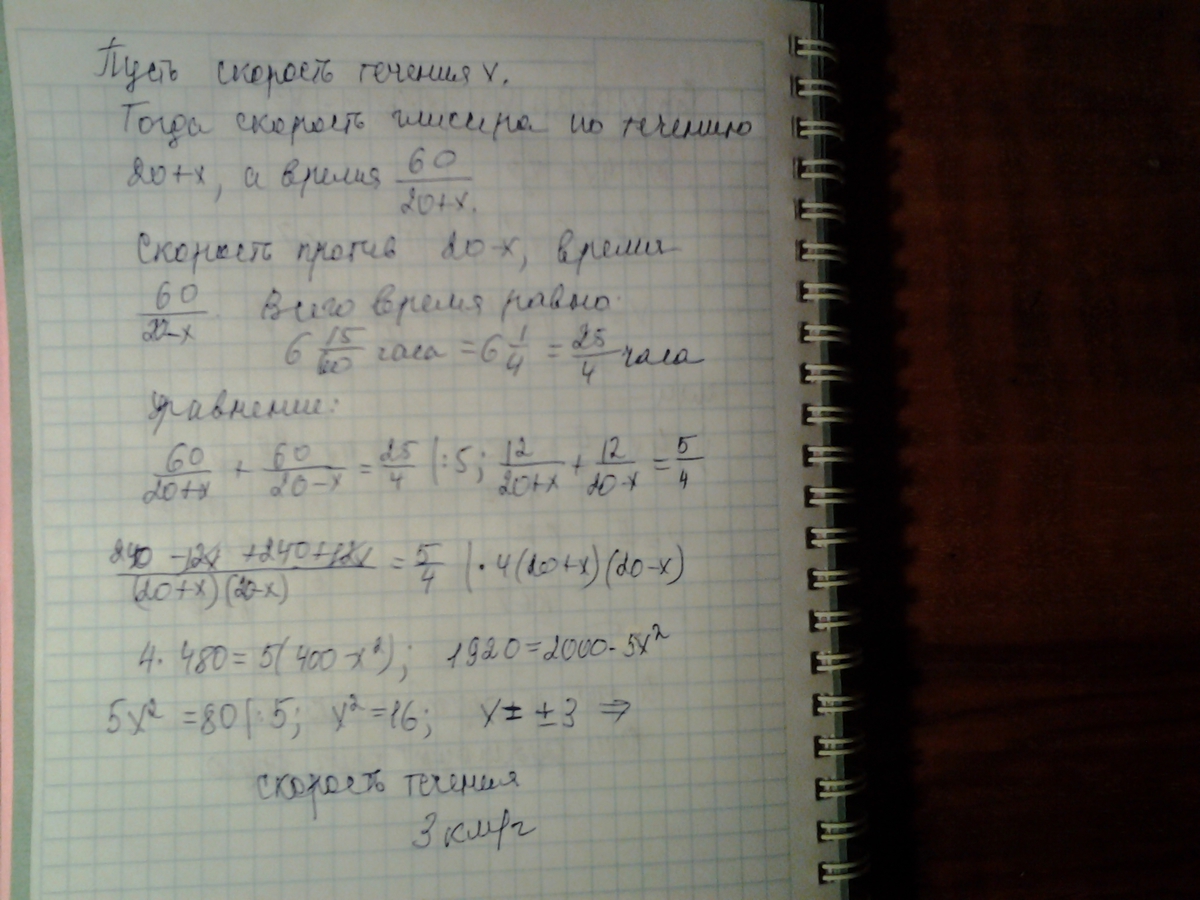 Пусть скорость течения x.
Тогда скорость глиссера по течению
20+x, а время 60/20+x.
Скорость против 20-x, время
60/20-x. Всего время равно
6 15/60 часа = 6 1/4 = 25/4 часа
Уравнение:
60/20+x + 60/20-x = 25/4 |:5; 12/20+x + 12/20-x = 5/4
240 -12x +240+12x/(20+x)(20-x) = 5/4 |·4(20+x)(20-x)
4·480=5(400-x²); 1920=2000-5x²
5x²=80|:5; x²=16; x= ±3 ⇒
скорость течения
3 км/ч